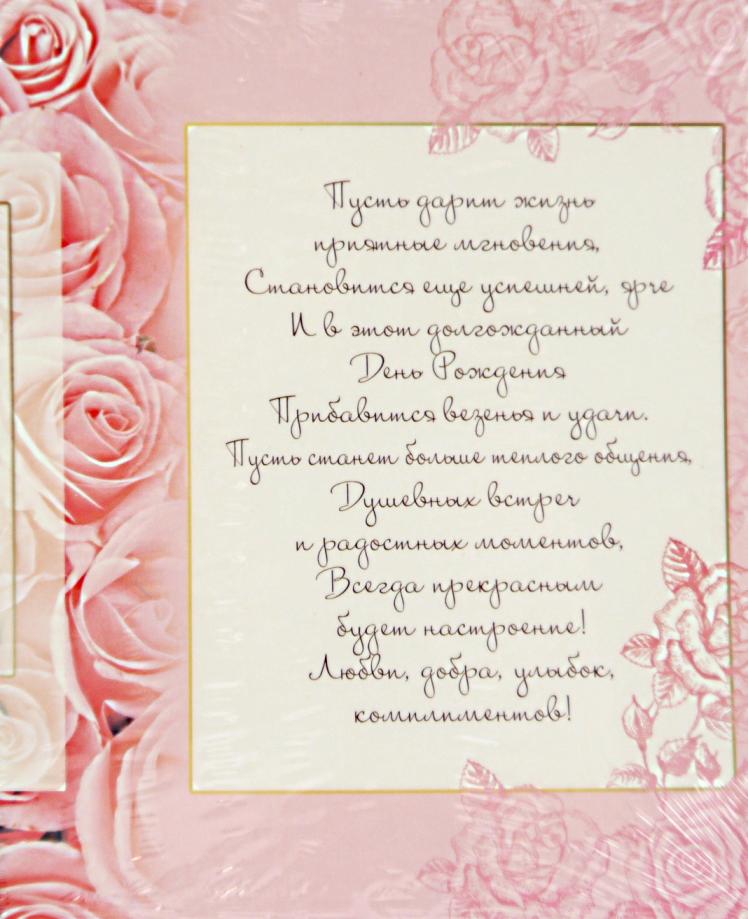 Пусть дарит жизнь
приятные мгновения,
Становится еще успешней, ярче
И в этот долгожданный
День Рождения
Прибавится везенья и удачи.
Пусть станет больше теплого общения,
Душевных встреч
и радостных моментов,
Всегда прекрасным
будет настроение!
Любви, добра, улыбок,
комплиментов!